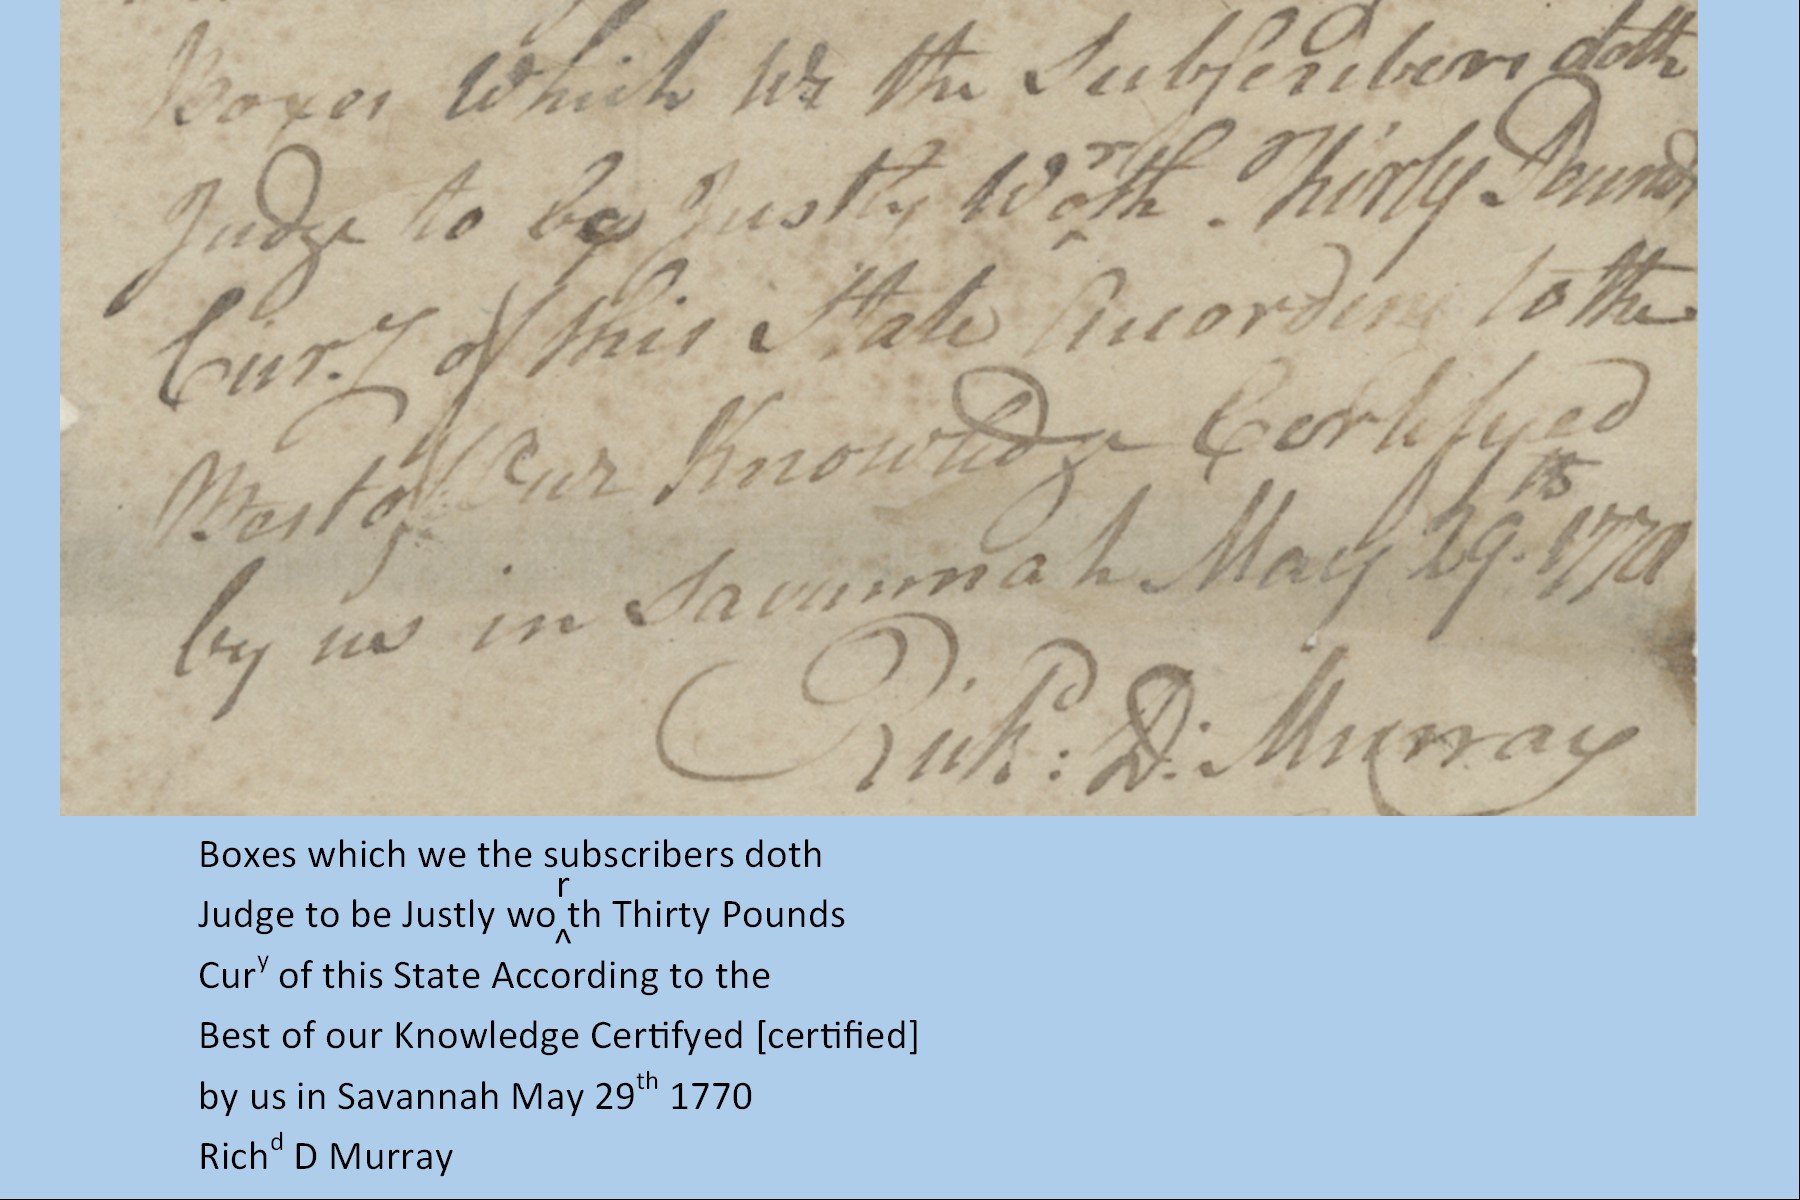 Boxes which We the Subscribers doth
Judge to be Justly Worth Thirty Pounds
Cur.y of this State According to the
Best of Our Knowledge Certifyed
by us in Savannah May 29th 1770
Richd: D: Murray
Boxes which we the subscribers doth
Judge to be Justly wo^rth Thirty Pounds
Cury of this State According to the
Best of our Knowledge Certifyed [certified]
by us in Savannah May 29th 1770
Richd D Murray